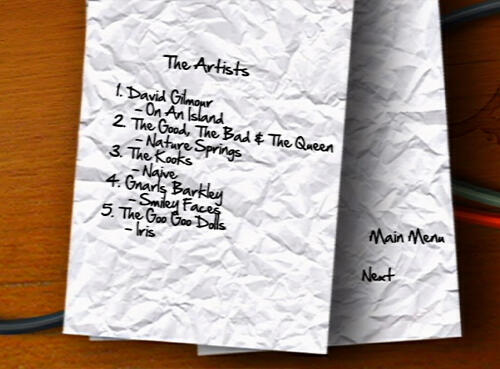 The Artists
1. David Gilmour
- On An Island
2. The Good, The Bad & The Queen
- Nature Springs
3. The Kooks
- Naive
4. Gnarls Barkley
- Smiley Faces
5. The Goo Goo Dolls
- Iris
Main Menu
Next